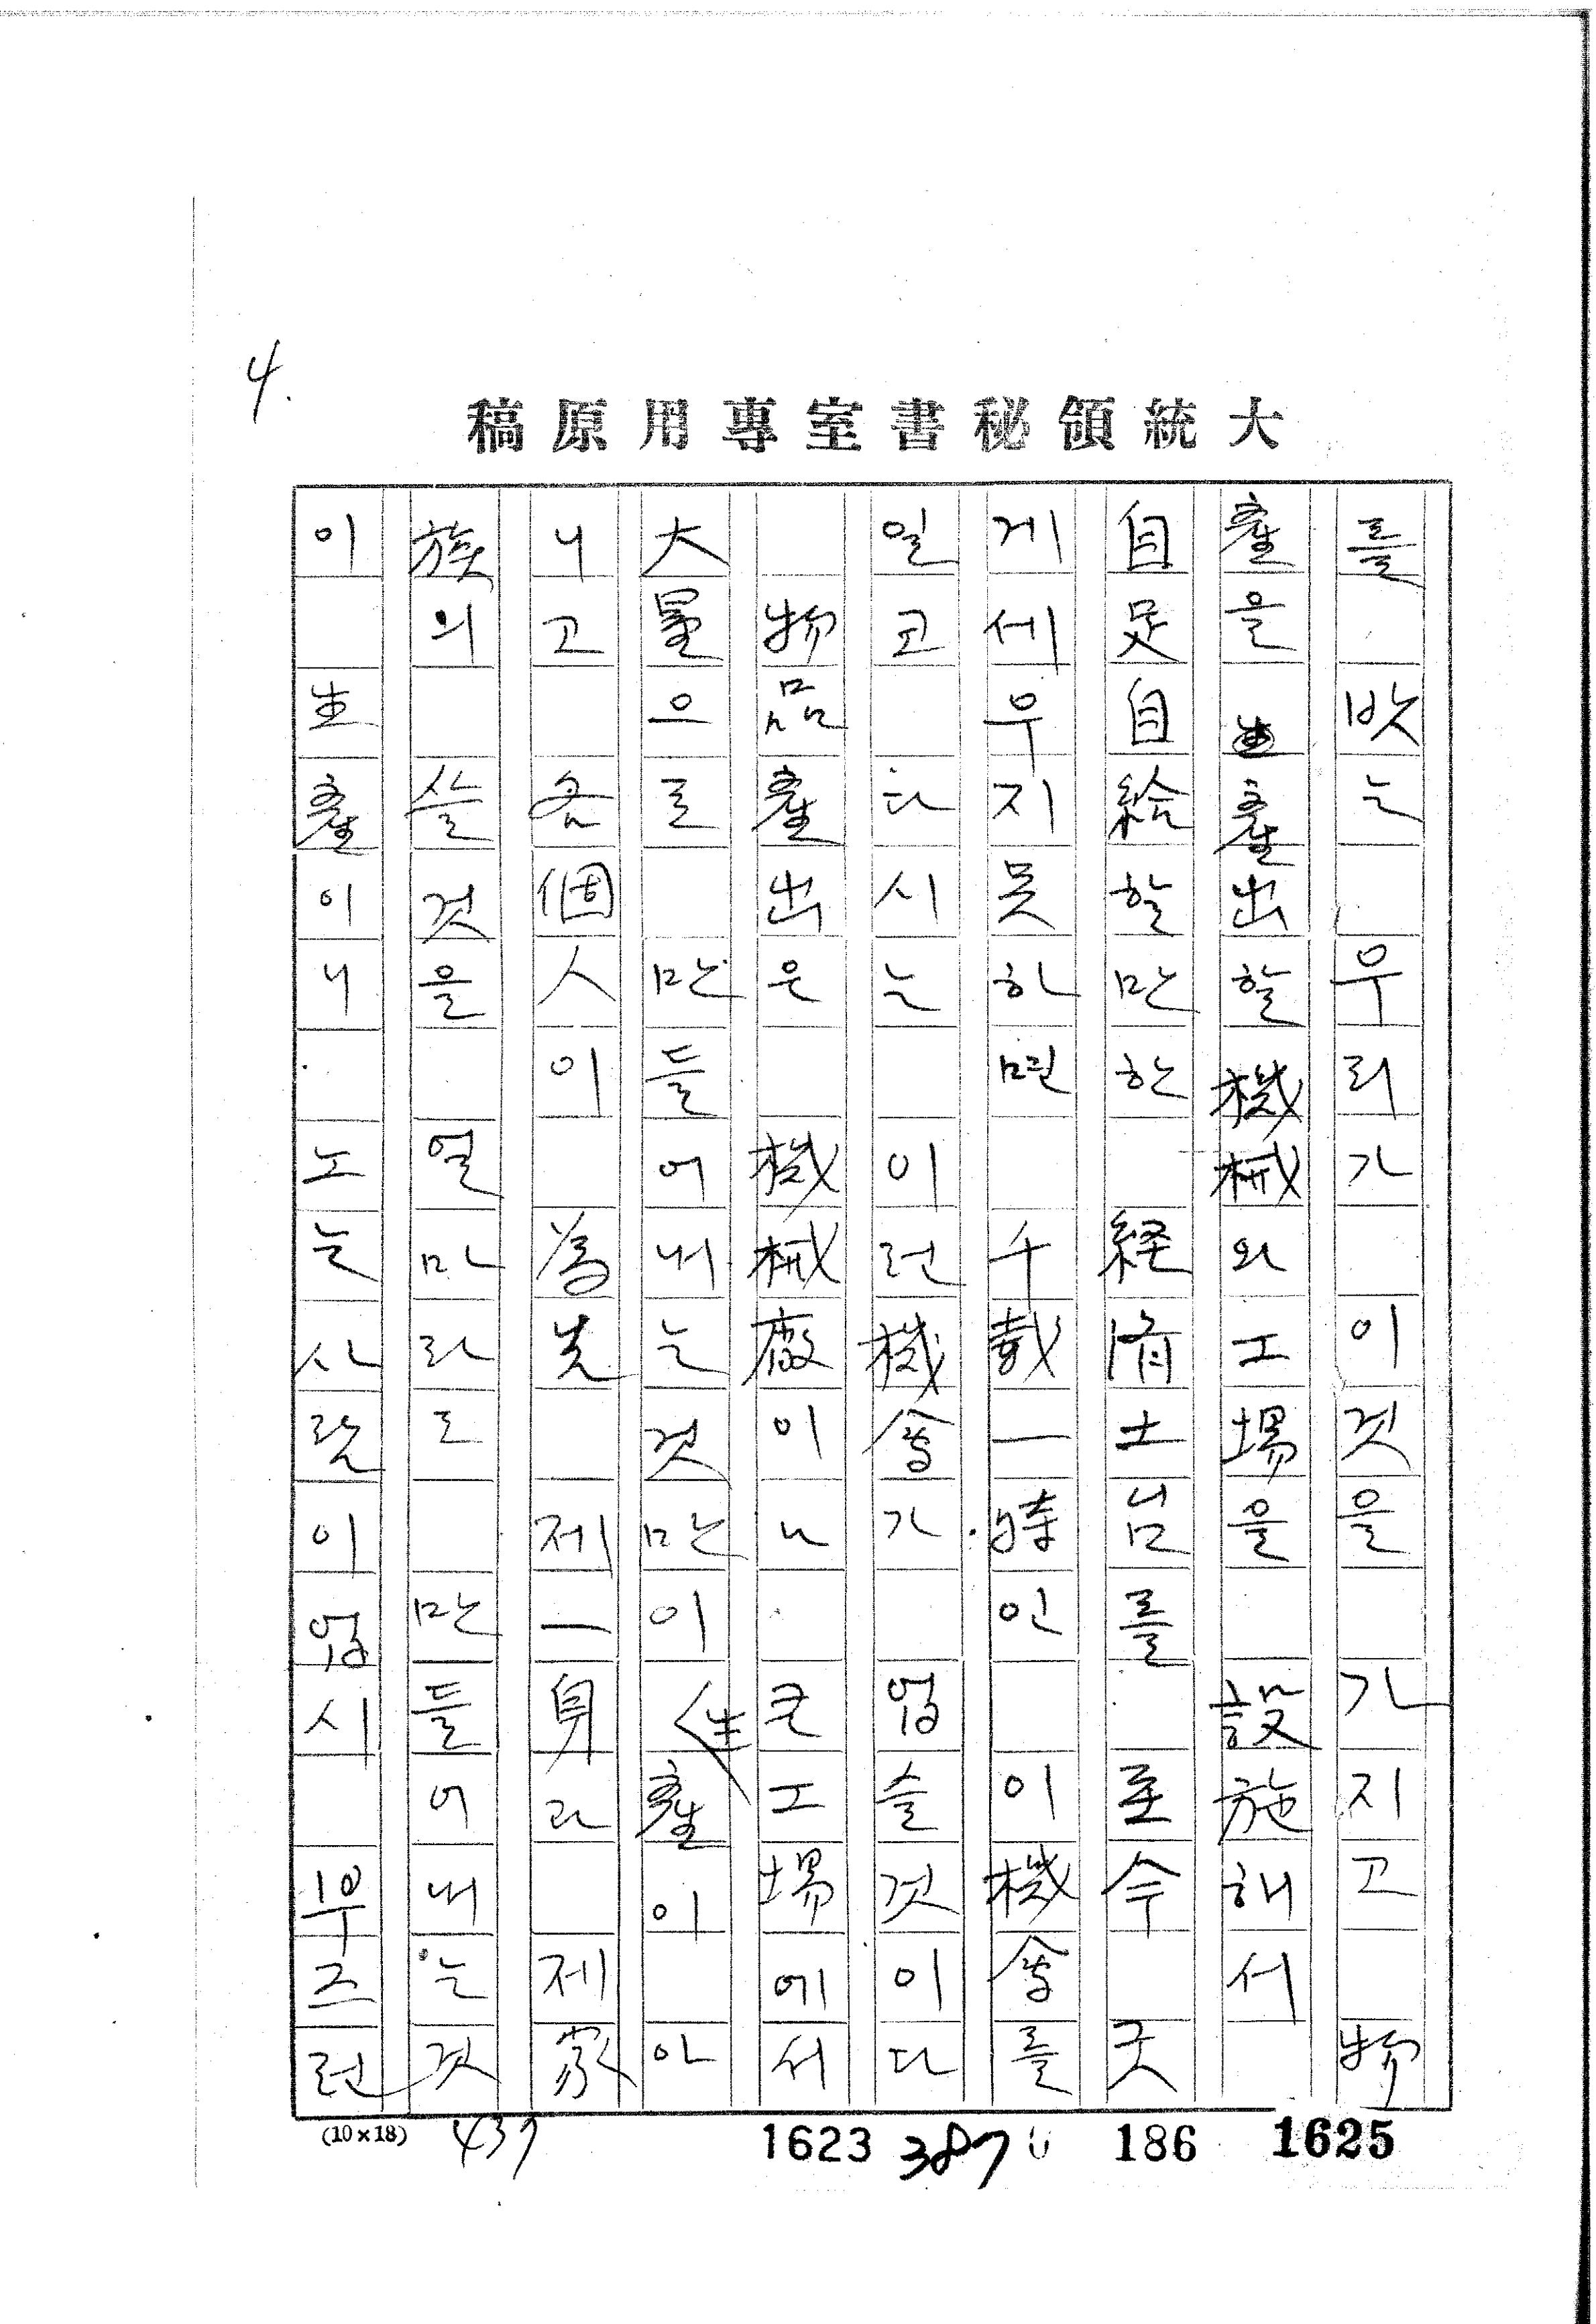 4.
大統領秘書室專用原稿
를 밧는 우리가 이것을 가지고 物
產을 產出할 機械와 工場을 設施해서
自足自給할만한 経済土台를 至今 굿
게 세우지 못하면 千載一時인 이 機會를
일코 다시는 이런 機會가 업슬 것이다
物品產出은 機械廠이나 큰 工場에서
大量으로 만들어내는 것만이 生產이 아
니고 各個人이 爲先 제一身과 제 家
族의 쓸 것을 얼마라도 만들어 내는 것
이 生產이니 노는 사람이 업시 부즈런
(10×18) 437 1623 387 186 1625